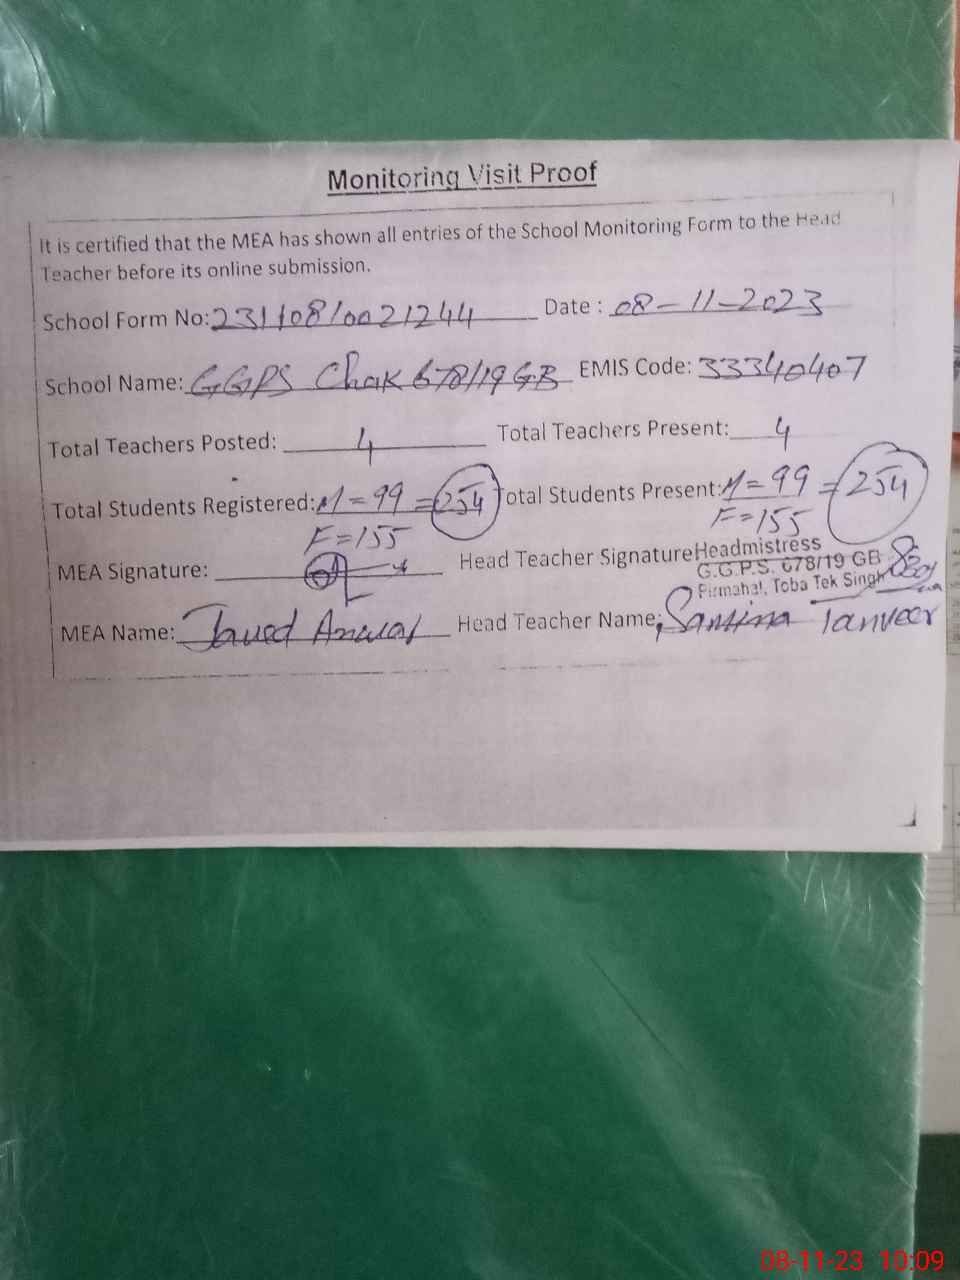 Monitoring Visit Proof
It is certified that the MEA has shown all entries of the School Monitoring Form to the Head
Teacher before its online submission.
School Form No: 231108/0021244 Date : 08-11-2023
School Name: GGPS Chak 678/19 GB EMIS Code: 33340407
Total Teachers Posted: 4 Total Teachers Present: 4
Total Students Registered: M=99 =254 Total Students Present: M=99 =254
F=155 F=155
MEA Signature: Head Teacher Signature Headmistress
G.G.P.S. 678/19 GB
Pirmahal, Toba Tek Singh
MEA Name: Javed Anwar Head Teacher Name: Tanveer
08-11-23 10:09